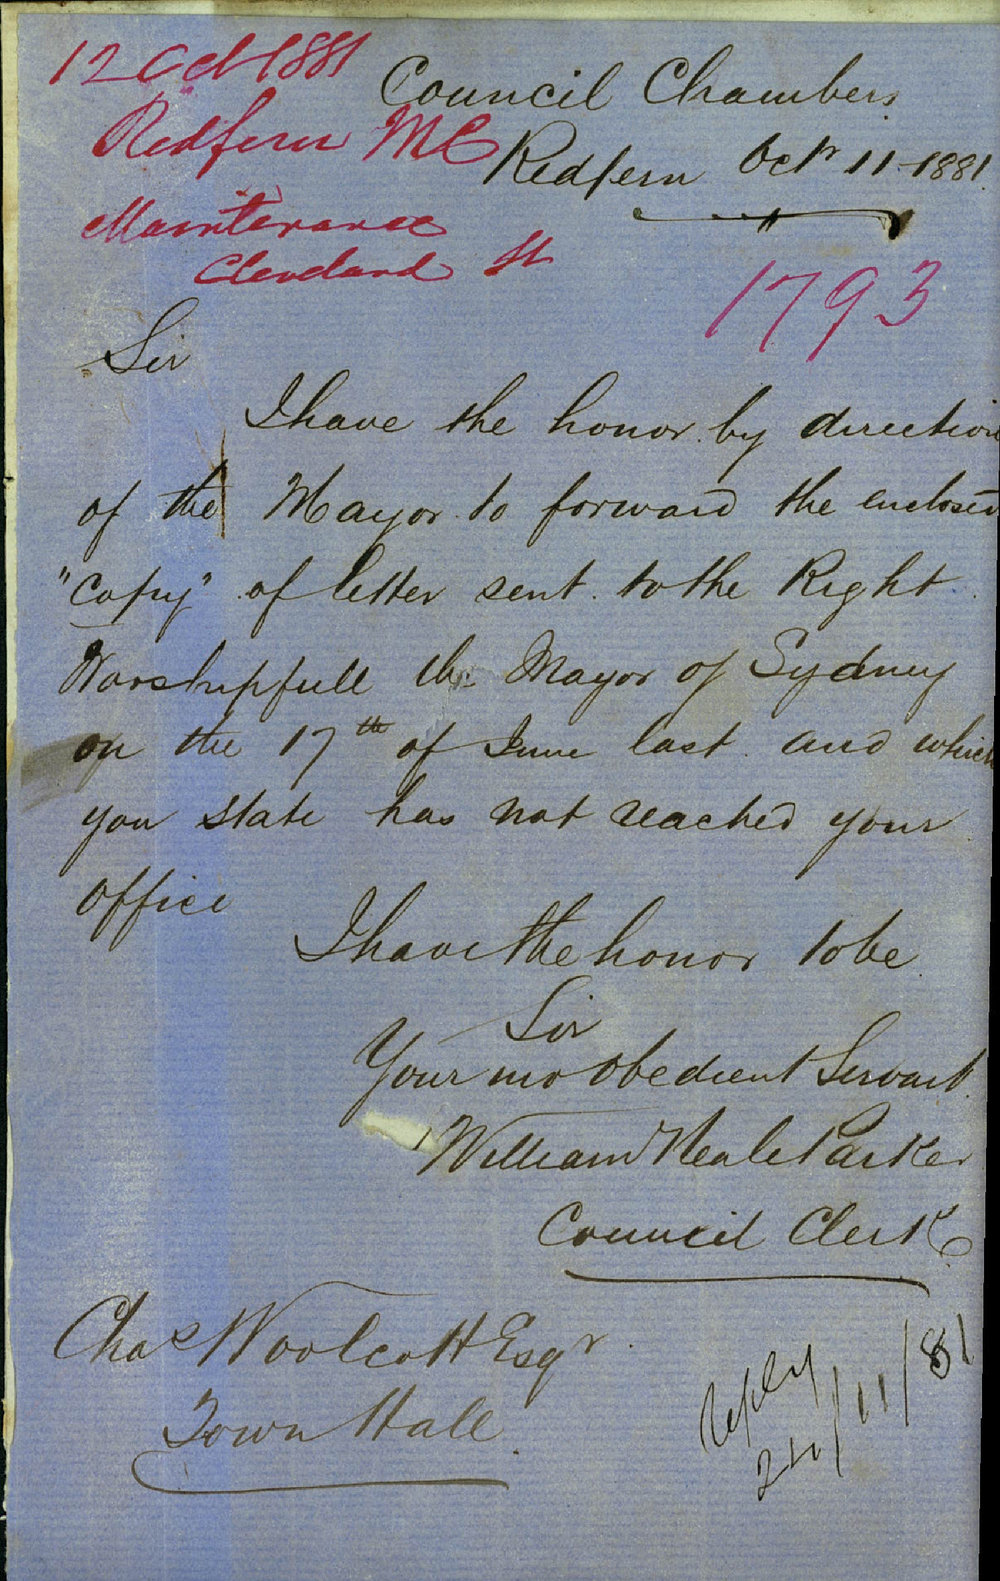 12 Oct 1881
Redfern MC
Maintenance
Cleveland St
Council Chambers
Redfern Octr 11-1881
1793
Sir
I have the honor by direction
of the Mayor to forward the enclosed
"Copy" of letter sent to the Right
Worshipfull the Mayor of Sydney
on the 17th of June last and which
you state has not reached your
Office
I have the honor to be
Sir
Your mo obedient Servant
William Neale Parker
Council Clerk
Chas Woolcott Esqr
Town Hall
Reply
/11/81